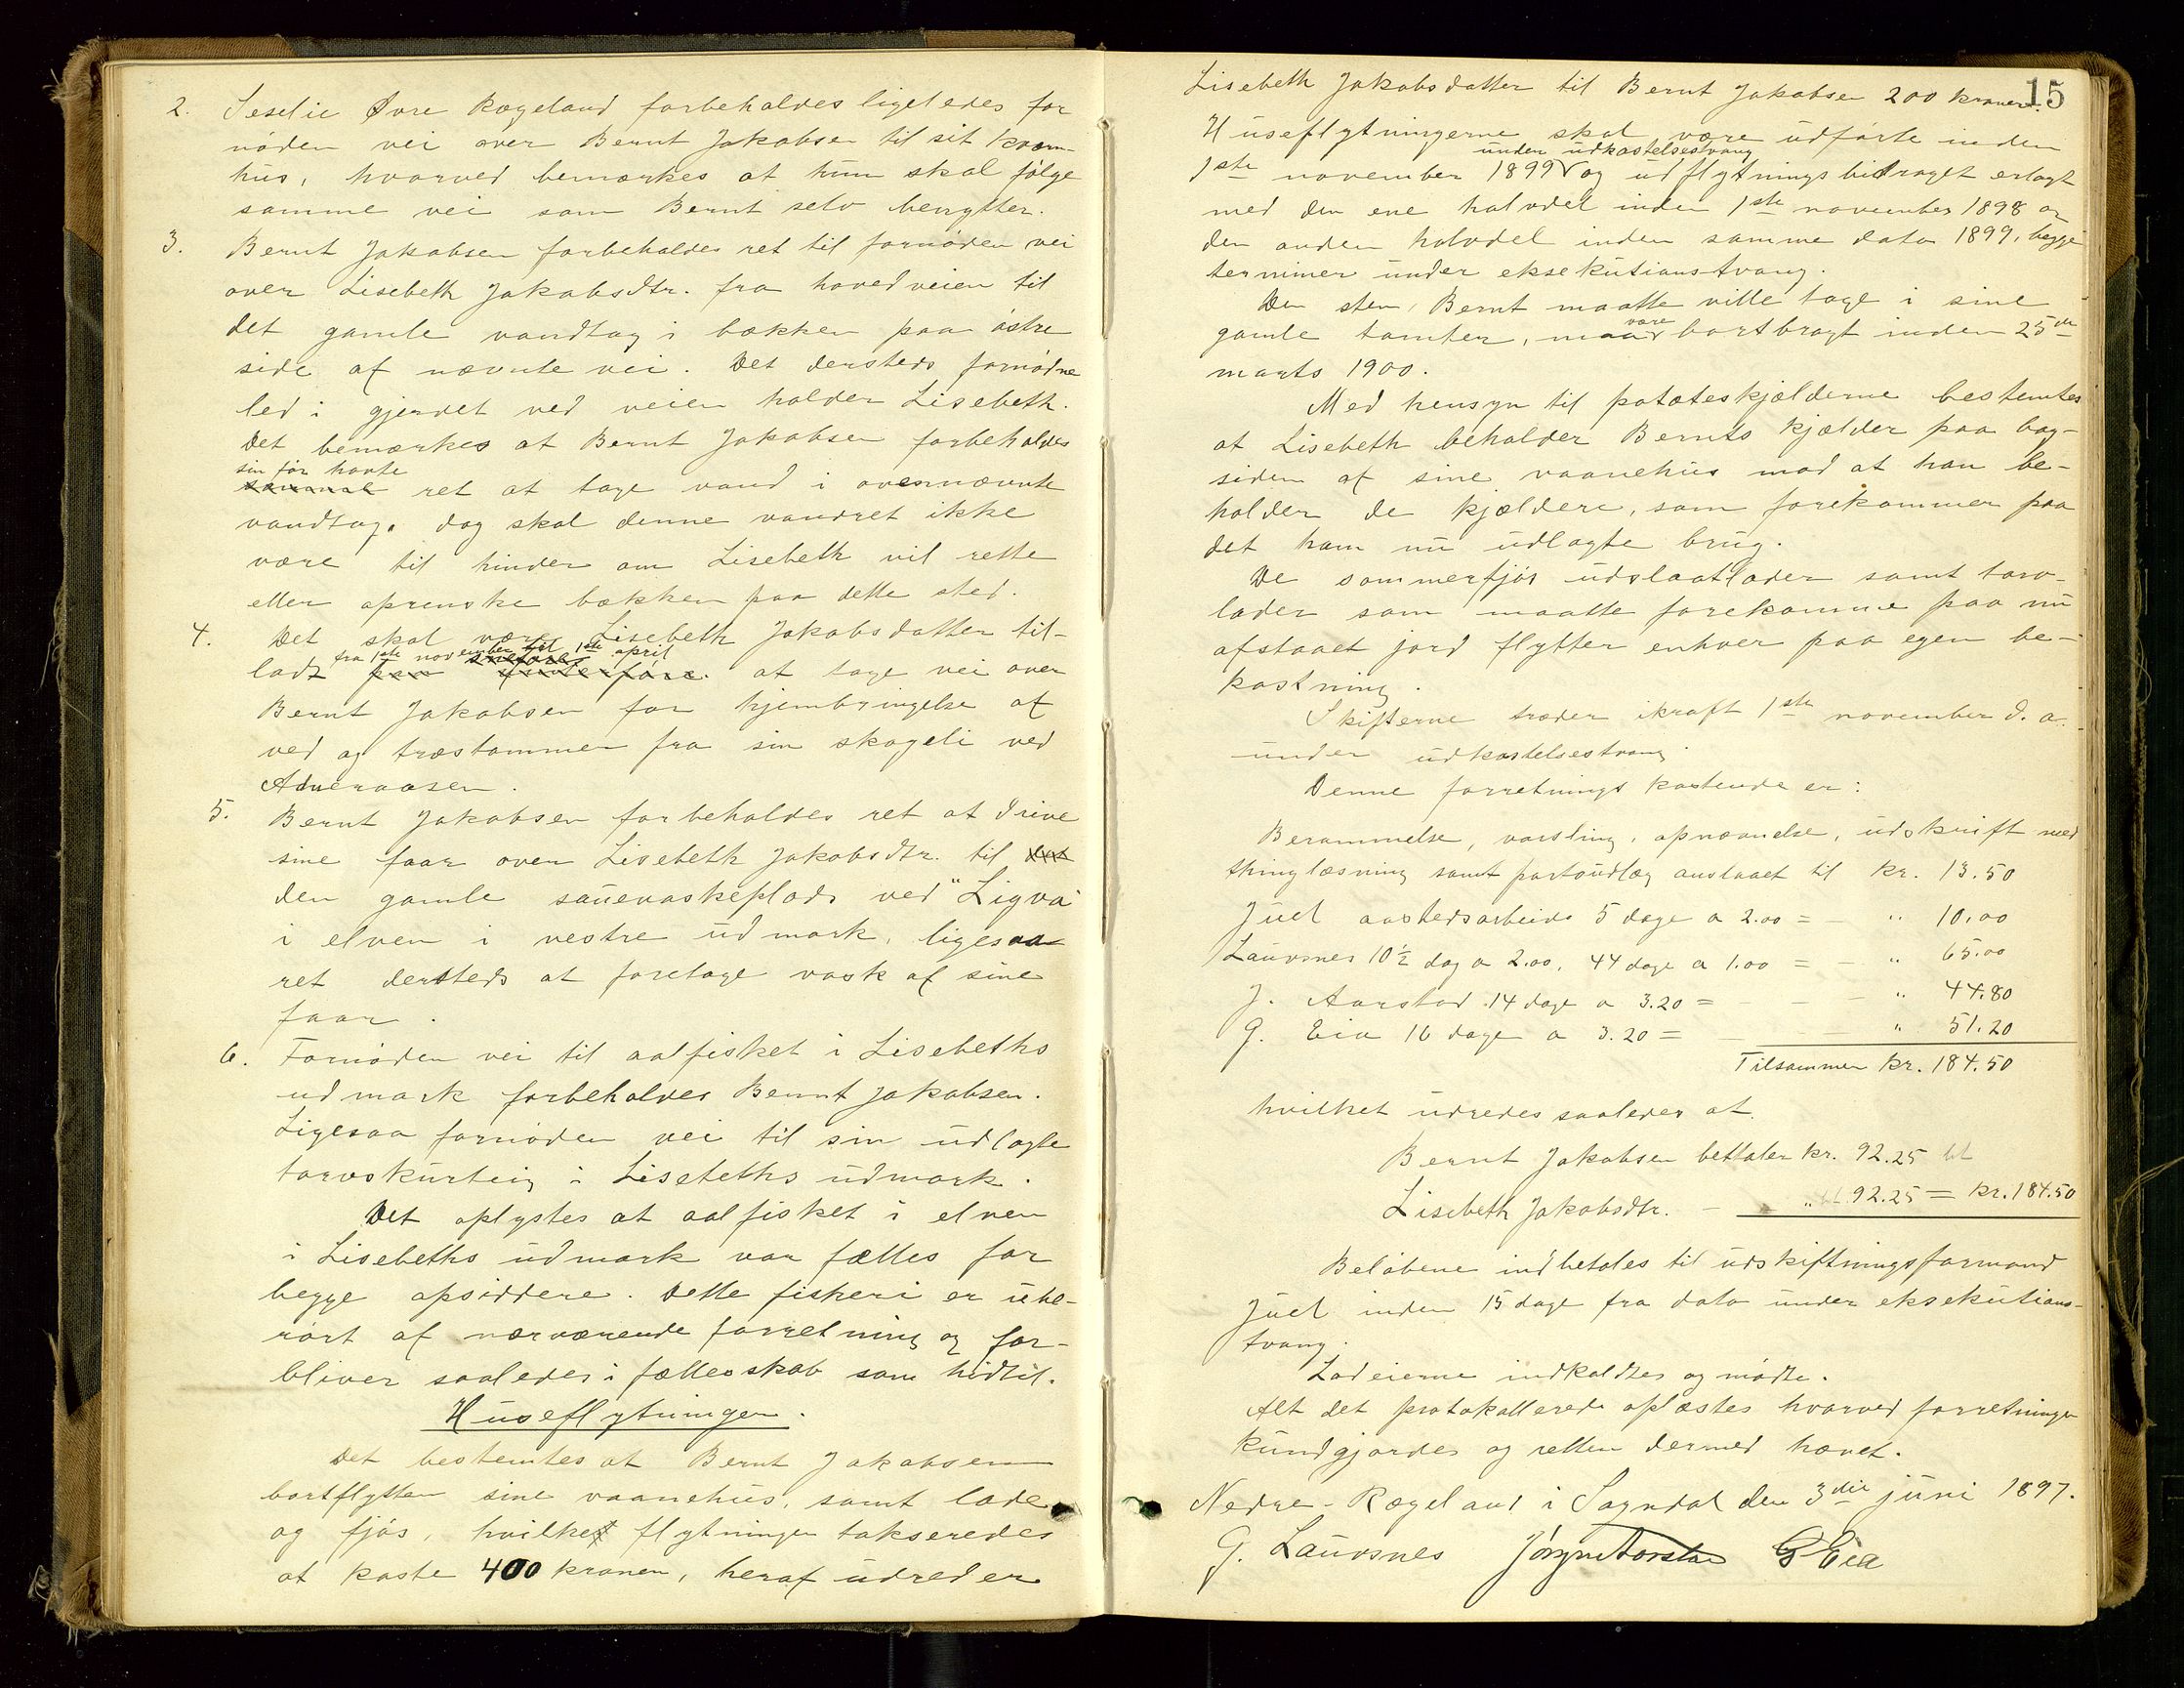 2. Seselie Øvre Rægeland forbeholdes ligeledes for
nöden vei over Bernt Jakobsen til sit kvern-
hus, hvorved bemærkes at hun skal fölge
samme vei som Bernt selv benytter.
3. Bernt Jakobsen forbeholdes ret til fornöden vei
over Lisebeth Jakobsdtr. fra hovedveien til
det gamle vandtag i bækken paa östre
side af nævnte vei. Det dersteds fornödne
led i gjerdet ved veien holder Lisebeth.
Det bemærkes at Bernt Jakobsen forbeholdes
sin för havte
ret at tage vand i ovennævnte
vandtag. dog skal denne vandret ikke
være til hinder om Lisebeth vil rette
eller oprenske bækken paa dette sted.
4. Det skal være Lisebeth Jakobsdatter til-
fra 1ste november til 1ste april
ladt at tage vei over
Bernt Jakobsen for hjembringelse af
ved og træstammer fra sin skogeli ved
Adneraasen.
5. Bernt Jakobsen forbeholdes ret at drive
sine faar over Lisebeth Jakobsdtr. til det
den gamle sauevaskeplads ved "Ligva"
i elven i vestre udmark, ligesaa
ret dersteds at foretage vask af sine
faar.
6. Fornöden vei til aalfisket i Lisebeths
udmark forbeholdes Bernt Jakobsen.
Ligesaa fornöden vei til sin udlagte
torvskurteig i Lisebeths udmark.
Det oplystes at aalfisket i elven
i Lisebeths udmark var fælles for
begge opsiddere. Dette fiskeri er ube-
rört af nærværende forretning og for-
bliver saaledes i fællesskab som hidtil.
Huseflytningen.
Det bestemtes at Bernt Jakobsen
bortflytter sine vaanehus, samt lade
og fjös, hvilket flytninger takseredes
at koste 400 kroner, heraf udreder
15
Lisebeth Jakobsdatter til Bernt Jakobsen 200 kroner.
Huseflytningerne skal være udförte inden
under udkastelsestvang
1ste november 1899 V og udflytningsbidraget erlagt
med den ene halvdel inden 1ste november 1898 og
den anden halvdel inden samme dato 1899, begge
terminer under eksekutionstvang.
Den sten, Bernt maatte ville tage i sine
være
gamle tomter, maa V bortbragt inden 25de
marts 1900.
Med hensyn til potateskjælderne bestemtes
at Lisebeth beholder Bernts kjælder paa bag-
siden af sine vaanehus mod at han be-
holder de kjældere, som forekommer paa
det ham nu udlagte brug.
De sommerfjös udslaatlader samt torv-
lader som maatte forekomme paa nu
afstaaet jord flytter enhver paa egen be-
kostning.
Skifterne træder ikraft 1ste november d. a.
under udkastelsestvang.
Denne forretnings kostende er:
Berammelse, varsling, opnævnelse, udskrift med
thinglæsning samt portoudlæg anslaaet til kr. 13.50
Juel aastedsarbeide 5 dage a 2.00 = - " 10.00
Lauvsnes 10½ dag a 2.00, 44 dage a 1.00 = - " 65.00
J. Aarstad 14 dage a 3.20 = - - - " 44.80
G. Eia 16 dage a 3.20 = - - " 51.20
Tilsammen kr. 184.50
hvilket udredes saaledes at
Bernt Jakobsen bettaler kr. 92.25 bt
Lisebeth Jakobsdtr. - " bt 92.25 = kr. 184.50
Belöbene indbetales til udskiftningsformand
Juel inden 15 dage fra dato under eksekutions-
tvang.
Lodeierne indkaldtes og mödte.
Alt det protokollerede oplæstes hvorved forretningen
kundgjordes og retten dermed hævet.
Nedre-Rægeland i Sogndal den 3die juni 1897.
G. Lauvsnes Jörgen Aarstad G Eia